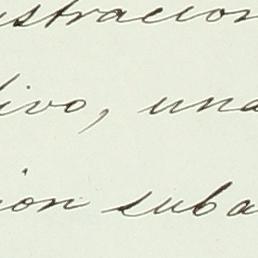 ustracion
livo, una
ion suba